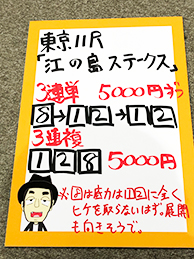 東京11R
「江の島ステークス」
3連単 5000円ずつ
8→12→12
3連複
1 2 8 5000円
※⑧は底力は①②に全く
ヒケを取らないはず。展開
も向きそうで。